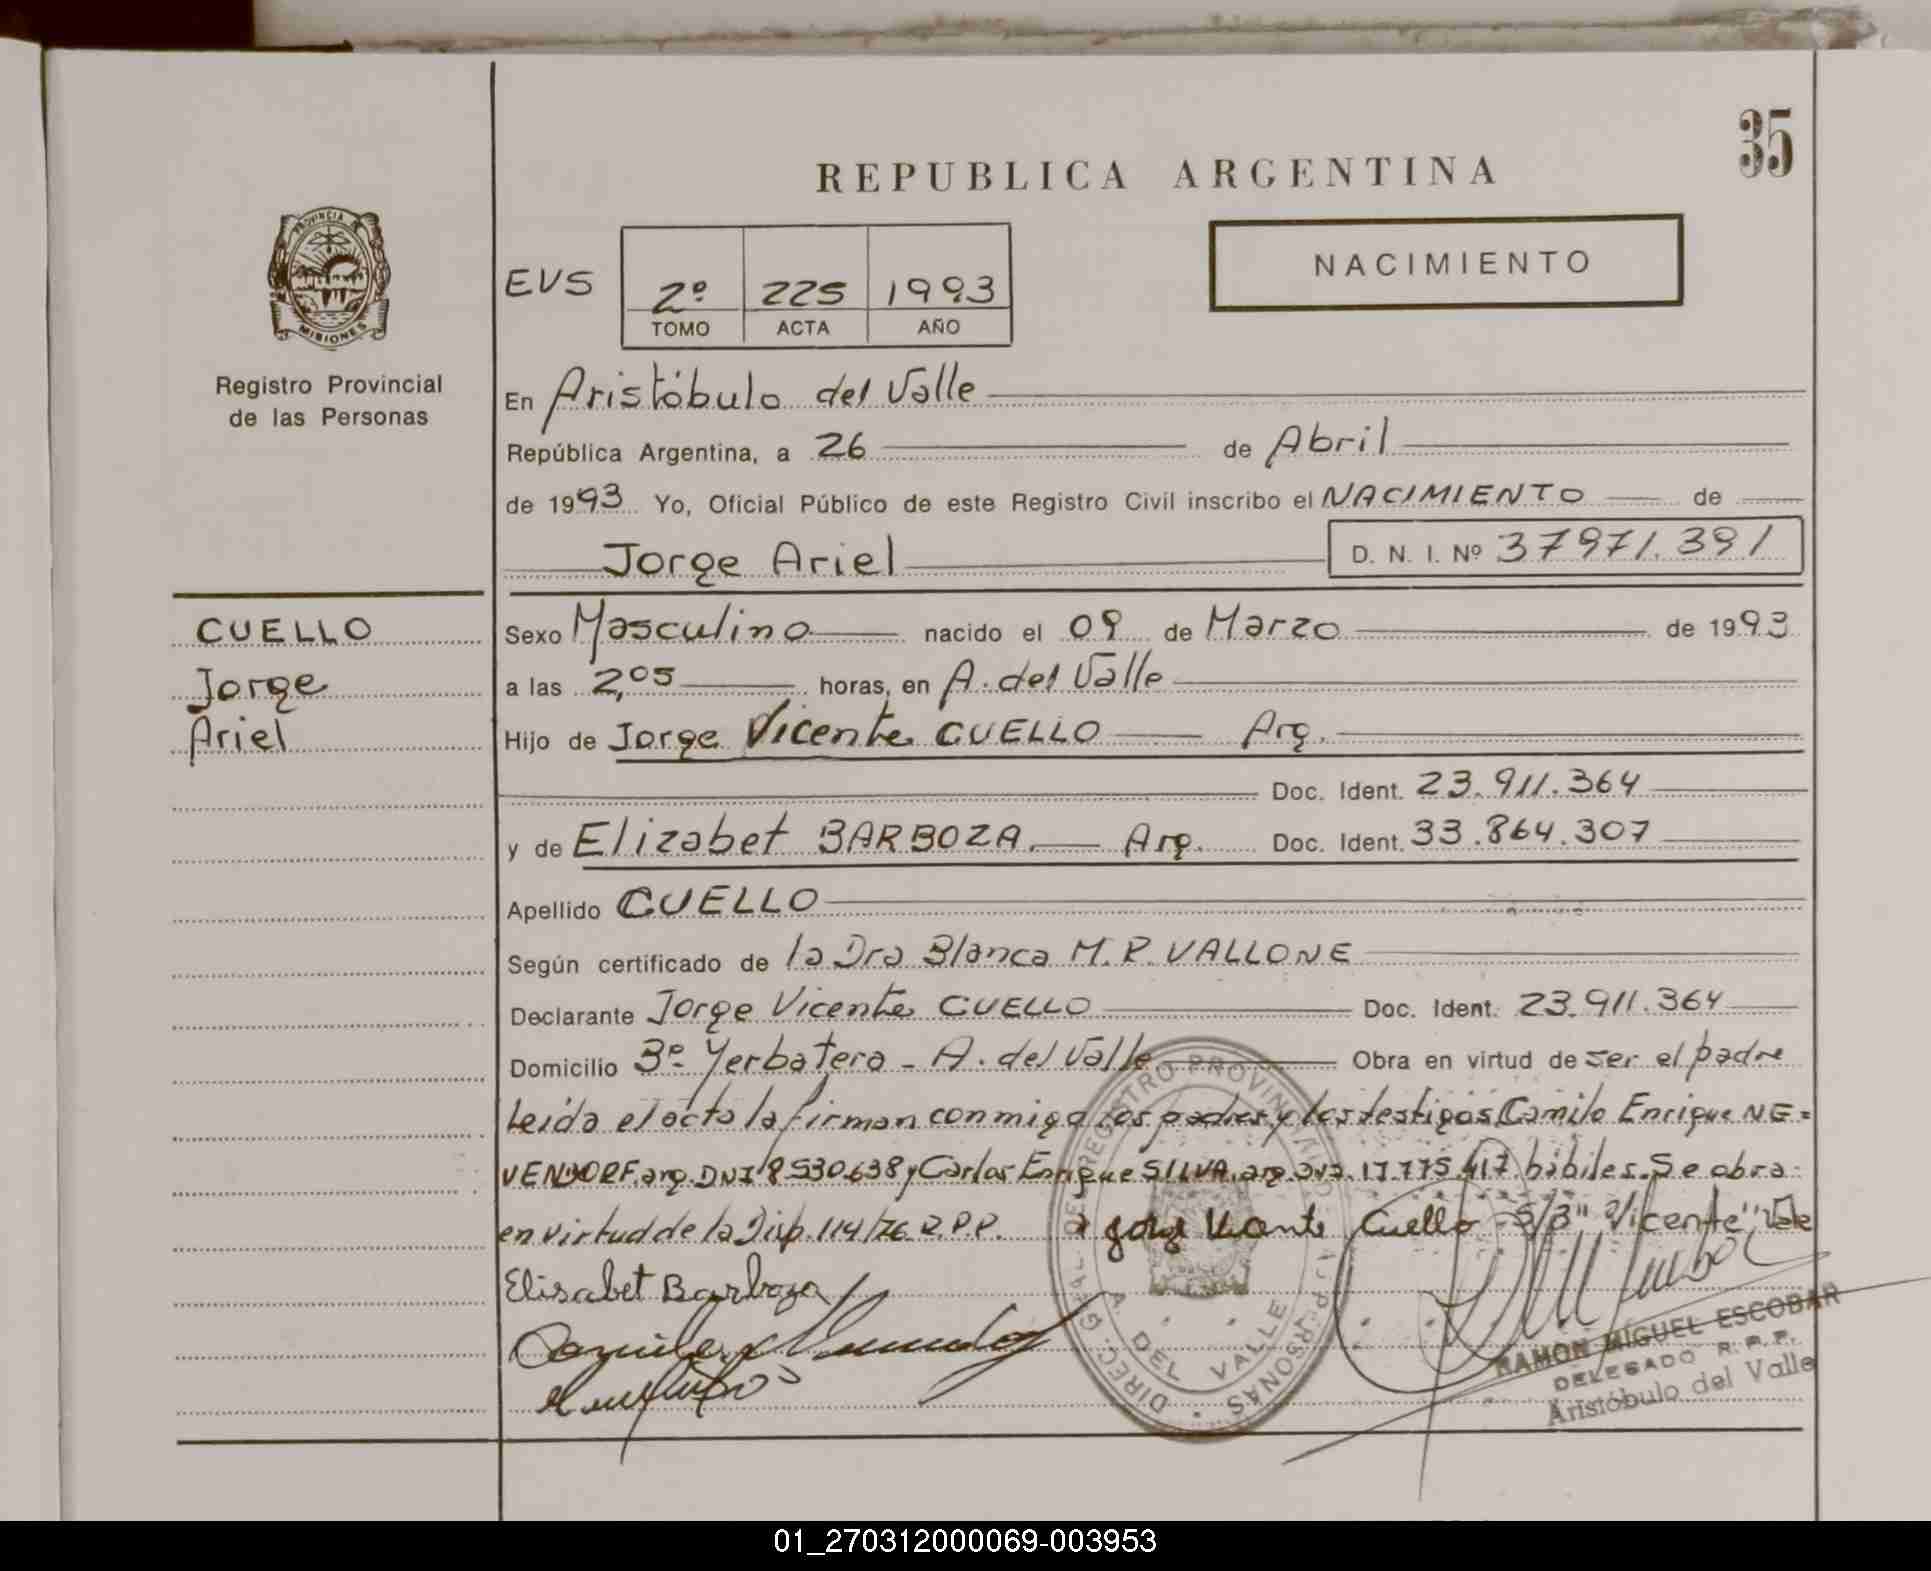 35
REPUBLICA ARGENTINA
PROVINCIA DE
MISIONES
Registro Provincial
de las Personas
NACIMIENTO
EVS 2º 225 1993
TOMO ACTA AÑO
En Aristóbulo del Valle
República Argentina, a 26 de Abril
de 1993 Yo, Oficial Público de este Registro Civil inscribo el NACIMIENTO de
Jorge Ariel D. N. I. Nº 37971.391
CUELLO
Jorge
Ariel
Sexo Masculino nacido el 09 de Marzo de 1993
a las 2,05 horas, en A. del Valle
Hijo de Jorge Vicente CUELLO Arg.
Doc. Ident. 23.911.364
y de Elizabet BARBOZA. Arg. Doc. Ident. 33.864.307
Apellido CUELLO
Según certificado de la Dra Blanca M. R. VALLONE
Declarante Jorge Vicente CUELLO Doc. Ident. 23.911.364
Domicilio Bº Yerbatero - A. del Valle Obra en virtud de ser el padre
Leída el acta la firman conmigo los padres y los testigos Camilo Enrique NE=
VENDORF. arg. DNI 8530.638 y Carlos Enrique SILVA. arg. 17.775.417 hábiles. Se obra
en virtud de la Disp. 114/76 R.P.P. Jorge Vicente Cuello S/B "Vicente" Vale
Elisabet Barboza
DIREC. GRAL. DE REGISTRO PROVINCIAL PERSONAS
A DEL VALLE
RAMON MIGUEL ESCOBAR
DELEGADO R.P.P.
Aristóbulo del Valle
01_270312000069-003953